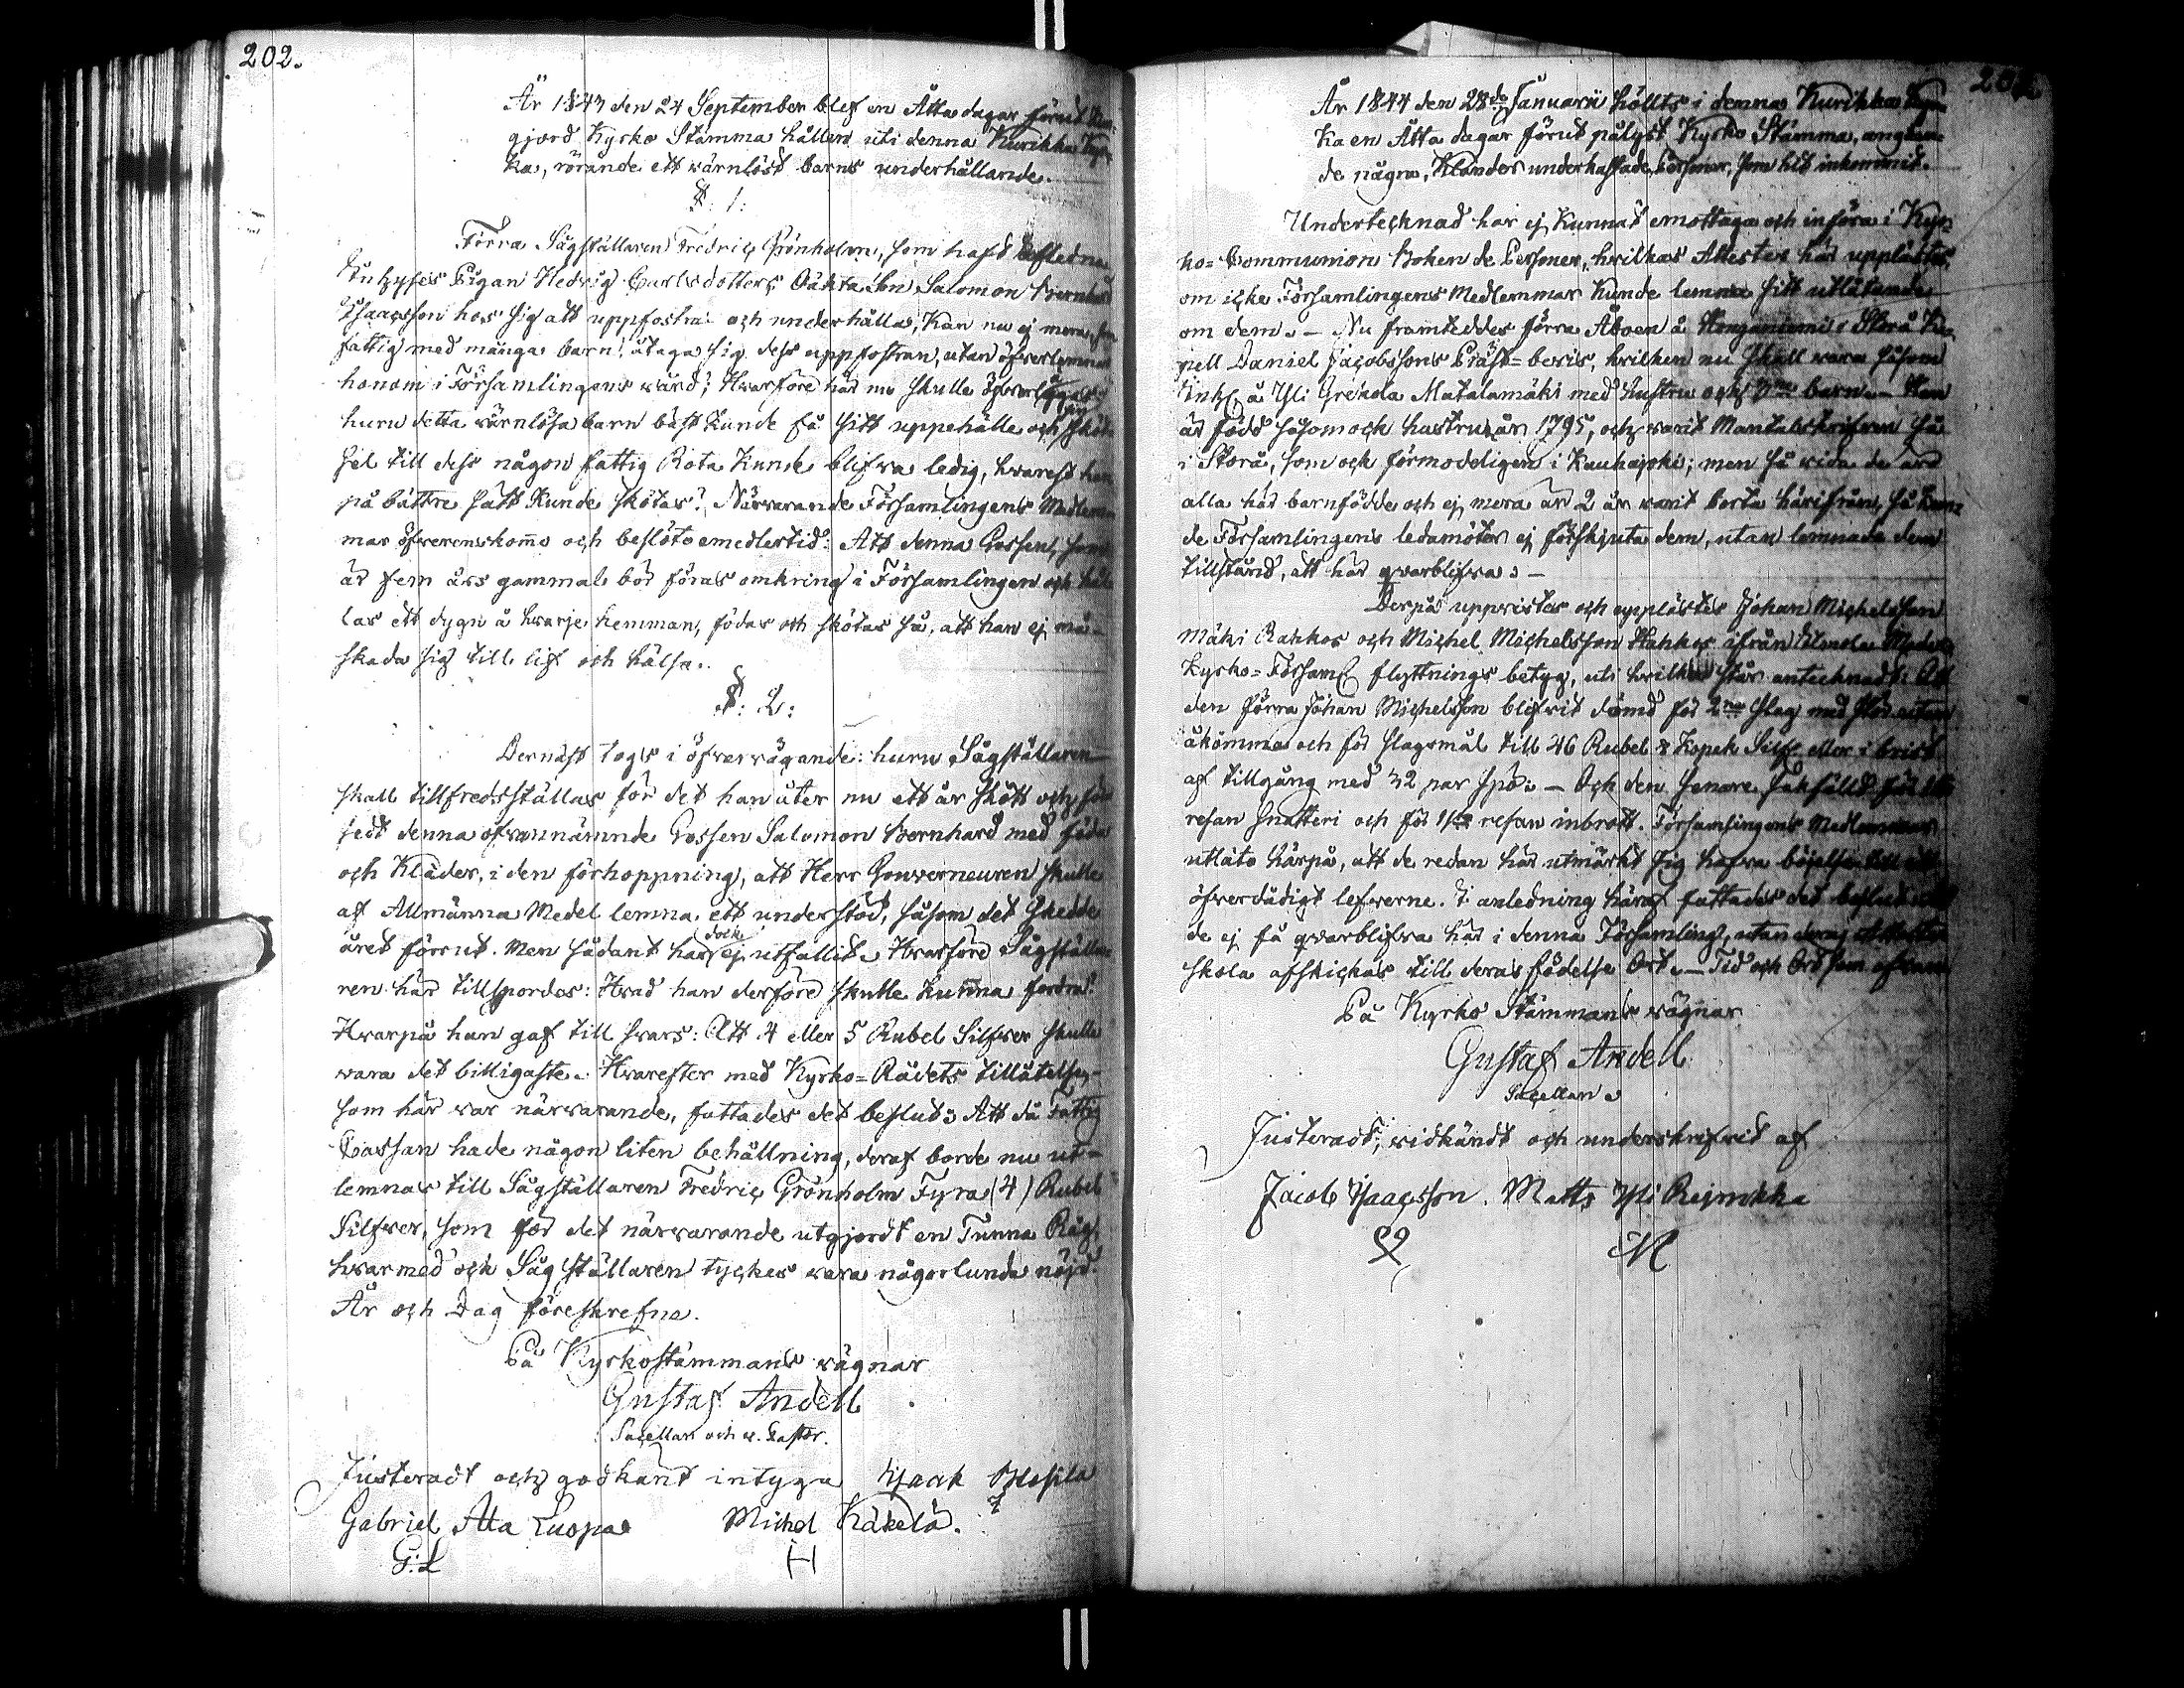 202.
År 1843 den 24 September blef en Åtta dagar förut
gjord Kyrko Stämma hållen uti denna Kurikka Kyr-
ka, rörande ett wärnlöst barns underhållande.
§: 1:
Förra Sågställaren Fredric Grönholm, som haft aflidna
Inhyses Pigan Hedvig Carlsdotters Oäkta Son Salomon Bernhard
Isaacsson hos sig att uppfostra och underhålla, kan nu ej mera, som
fattig med många barn, åtaga sig dess uppfostran, utan öfverlemnat
honom i Församlingens wård; Hwarföre här nu skulle öfwerläggas:
huru detta wärnlösa barn bäst kunde få sitt uppehälle och sköt-
sel till dess någon fattig Rota kunde blifva ledig, hwarest han
på bättre sätt kunde skötas? Närwarande Församlingens Medlem-
mar öfwerenskommo och beslöto emedlertid: Att denna Gossen, som
är fem års gammal bör föras omkring i Församlingen och hål-
las ett dygn å hwarje hemman, födas och skötas så, att han ej må
skada sig till lif och hälsa.
§: 2:
Dernäst togs i öfwerwägande: huru Sågställaren
skall tillfredsställas för det han åter nu ett år skött och fö-
sedt denna ofwannämnde Gossen Salomon Bernhard med föda
och Kläder, i den förhoppning, att Herr Gouverneuren skulle
af Allmänna Medel lemna ett understöd, såsom det skedde
året förrut. Men sådant har dock ej utfallit. Hwarföre Sågställa-
ren här tillspordes: Hwad han derföre skulle kunna fordra?
Hwarpå han gaf till swars: Att 4 eller 5 Rubel Silfwer skulle
wara det billigaste. Hwarefter med Kyrko-Rådets tillåtelse,
som här war närwarande, fattades det beslut: Att då Fattig
Cassan hade någon liten behållning, deraf borde nu ut-
lemnas till Sågställaren Fredric Grönholm Fyra (4) Rubel
Silfwer, som för det närwarande utgjordt en Tunna Råg,
hwarmed och Sågställaren tyckes wara någorlunda nöjd.
År och Dag föreskrefne.
På Kyrkostämmans wägnar
Gustaf Andell
Sacellan och v. Pastor.
Justeradt och godkänt intyga Isaak
Gabriel Ala Luopa Michel Käkelä.
G:L H
År 1844 den 28de Januarii hölts i denna Kurikka Kyr-
ka en Åtta dagar förut pålyst Kyrko Stämma, angåen-
de några, Klander underkastade, Personer, som hit inkommit.
Undertecknad har ej kunnat emottaga och införa i Kyr-
ko-Communion Boken de Personer, hwilkas Attester här upplästes,
om icke Församlingens Medlemmar kunde lemna sitt utlåtande
om dem. – Nu framteddes förra Åboen å Storå Ka-
pell Daniel Jacobssons Präst-bevis, hwilken nu skall wara såsom
Inh. å Yli Grekola Matalamäki med hustru och barn. – Han
är född såsom ock hustrun år 1795, och warit Mantalskrifwen så
i Storå, som ock förmodeligen i Kauhajoki; men så wida de äro
alla här barnfödde och ej mera än 2 år warit borta härifrån, så kun-
de Församlingens ledamöter ej förskjuta dem, utan lemnade dem
tillstånd, att här qwarblifwa: –
Derpå uppwistes och upplästes Johan Michelsson
Mäki Rahkos och Michel Michelsson Hahkos ifrån
Kyrko-Förs. flyttnings betyg, uti hwilka står antecknadt: Att
den förra Johan Michelsson blifwit dömd för 2ne slag med
åkomma och för slagsmål till 46 Rubel 8 Kopek Silf. eller i brist
af tillgång med 32 par Spö: – Och den senare sakfälld för 1sta
resan snatteri och för 1sta resan inbrott. Församlingens Medlemmar
utläto härpå, att de redan här utmärkt sig hafwa böjelse till ett
öfwerdådigt lefwerne. I anledning häraf fattades det beslut att
de ej få qwarblifwa här i denna Församling, utan deras attester
skola afskickas till deras födelse Ort. – Tid och Ort som ofwan
På Kyrko Stämmans wägnar
Gustaf Andell
Sacellan.
Justeradt, widkändt och underskrifwit af
Jacob Isaacsson. Matts Yli Rejnikka